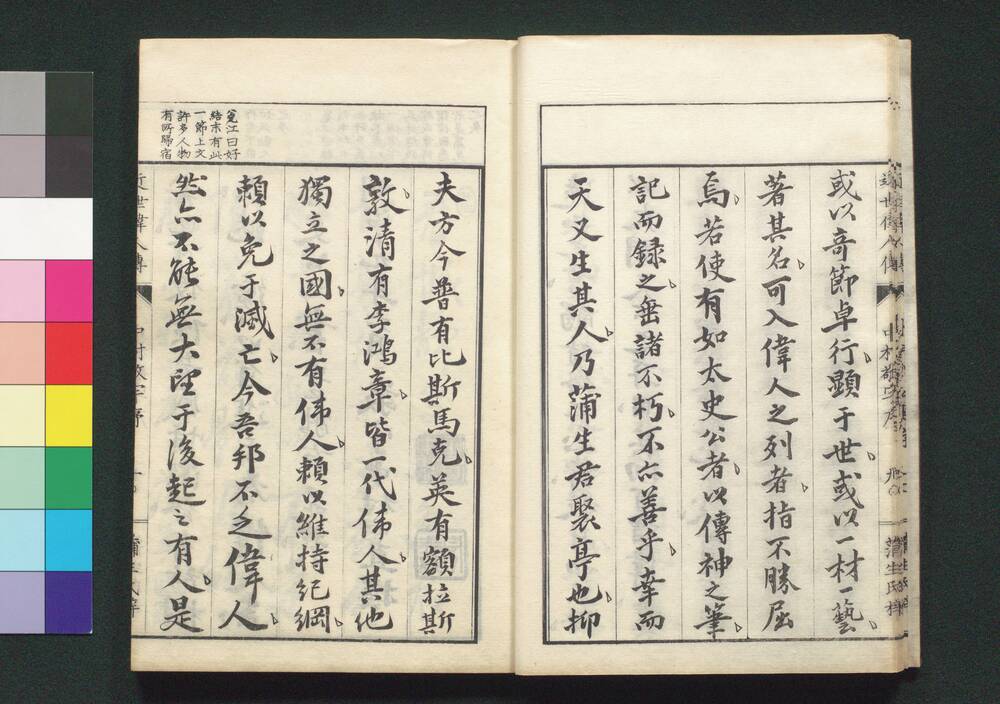 或以奇節卓行顕于世或以一材一藝
著其名可入偉人之列者指不勝屈
焉若使有如太史公者以傳神之筆
記而録之垂諸不朽不亦善乎幸而
天又生其人乃蒲生君聚亭也抑
夫方今普有比斯馬克英有額拉斯
敦清有李鴻章皆一代偉人其他
獨立之國無不有偉人頼以維持紀綱
頼以免于滅亡今吾邦不乏偉人
然亦不能無大望于後起之有人是
江曰好
結末有此
一節上文
許多人物
有所歸宿
近世偉人傳